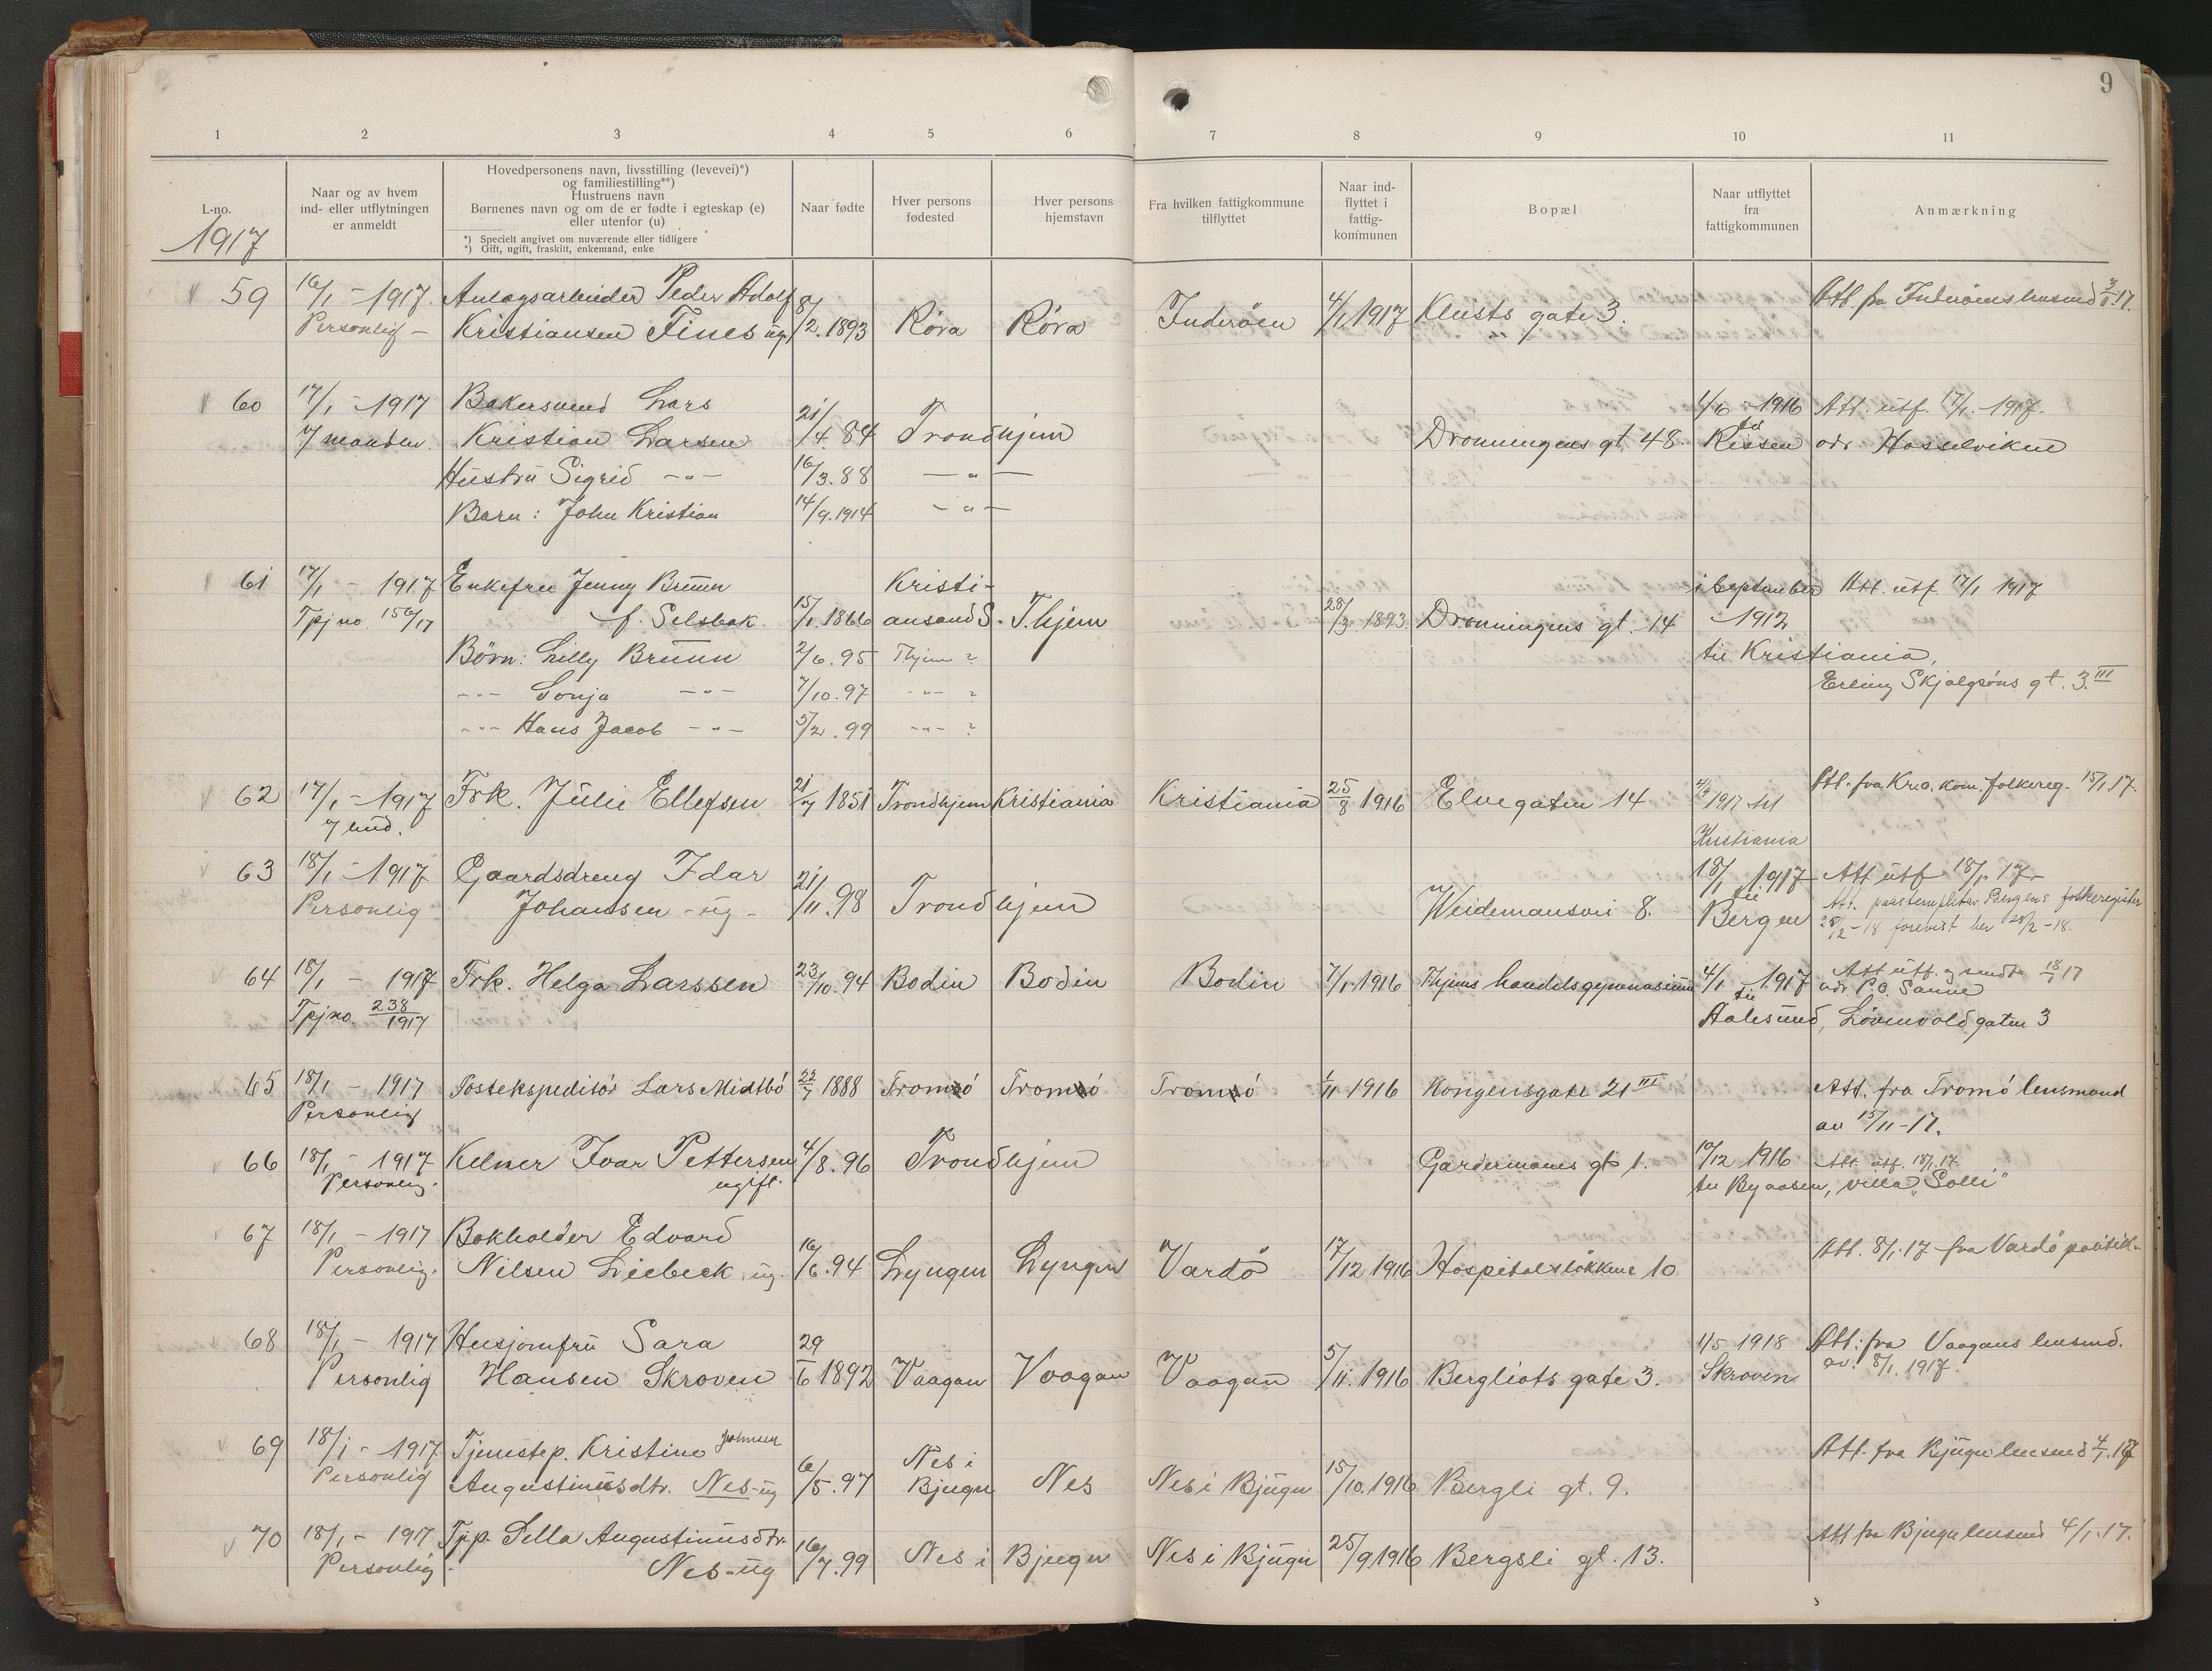 9
1 2 3 4 5 6 7 8 9 10 11
L-no.
1917
Naar og av hvem
ind- eller utflytningen
er anmeldt
Hovedpersonens navn, livsstilling (levevei)*)
og familiestilling**)
Hustruens navn
Børnenes navn og om de er fødte i egteskap (e)
eller utenfor (u)
*) Specielt angivet om nuværende eller tidligere
*) Gift, ugift, fraskilt, enkemand, enke
Naar fødte
Hver persons
fødested
Hver persons
hjemstavn
Fra hvilken fattigkommune
tilflyttet
Naar ind-
flyttet i
fattig-
kommunen
Bopæl
Naar utflyttet
fra
fattigkommunen
Anmærkning
59 16/1 - 1917. Anlægsarbeider Peder Adolf Att. fra Inderøens lensmd 3/1.17.
Personlig - Kristiansen Fines ug. 8/2.1893 Röra Röra Inderöen 4/1 1917 Kleists gate 3.
60 17/1 - 1917 Bakersvend Lars 1/6 - 1916 Att. utf. 17/1. 1917.
7/ manden. Kristian Larsen 21/4.84 Trondhjem Dronningens gt. 48. til Rissen adr. Hasselviken
Hustru Sigrid -"- 16/3.88 -"-
Barn: John Kristian 14/9.1914 -"-
61 17/1 - 1917 Enkefru Jenny Bruun Kristi- i September Att. utf. 17/1 1917
Tpj no. 156/17 f. Selsbak 15/1.1866 ansand S. T.hjem 28/3.1893. Dronningens gt. 14 1912
Børn: Lilly Bruun 2/6.95 Thjem ? til Kristiania,
-"- Sonja -"- 7/10.97 -"- ? Erling Skjalgsöns gt. 3.III
-"- Hans Jacob -"- 5/2.99 -"- ?
62 17/1 - 1917 Frk. Julie Ellefsen 21/7 1851 Trondhjem Kristiania Kristiania 25/8 1916 Elvegaten 14 1917 til Att. fra Kra. kom. folkereg. 15/1.17.
Kristiania
63 18/1 - 1917 Gaardsdreng Idar 18/1 1917 Att utf 18/1. 17
Personlig Johansen - ug - 21/11.98 Trondhjem Weidemansvei 8. til Bergen Att. paastemplet av Bergens folkeregister
28/2-18 forevist her 28/2-18.
64 18/1 - 1917 Frk. Helga Larssen 23/10.94 Bodin Bodin Bodin 7/1.1916 Thjems handelsgymnasium 4/1 1917 Att utf. og sendt 18/1 17
Tpjno. 238/1917 til adr. P.O. Sanne
Aalesund, Lövenvoldgaten 3
65 18/1 - 1917 Postekspeditör Lars Midtbö 22/7 1888 Tromsö Tromsö Tromsö 1/11 1916 Kongensgate 21 III Att. fra Tromsö lensmand
Personlig av 15/11-17.
66 18/1 - 1917 Kelner Ivar Pettersen 4/8.96 Trondhjem Gardermoens gt 1. 10/12 1916 Att utf. 18/1.17
Personlig. ugift. til Byaasen, villa "Solli"
67 18/1 - 1917 Bokholder Edvard
Personlig. Nilsen Liebeck, ug. 16/6.94 Lyngen Lyngen Vardö 17/12 1916 Hospitalslökken 10 Att. 8/1.17 fra Vardö politik.
68 18/1 - 1917 Husjomfru Sara 1/5 1918 Att: fra Vaagans lensmd.
Personlig Hansen Skroven 29/1 1892 Vaagan Vaagan Vaagan 5/11.1916 Bergliots gate 3. Skroven av. 8/1.1917.
69 18/1 - 1917 Tjenestep. Kristine Johnsen Att. fra Bjugn lensmd 4/1.17
Personlig Augustinusdtr. Nes - ug 6/5.97 Nes i Bjugn Nes Nes i Bjugn 15/10.1916 Bergli gt. 9.
70 18/1 - 1917 Tjp. Sella Augustinusdtr. Att fra Bjugn lensmd 4/1.17.
Personlig. Nes - ug 16/7.99 Nes i Bjugn Nes i Bjugn 25/9 1916 Bergsli gt. 13.